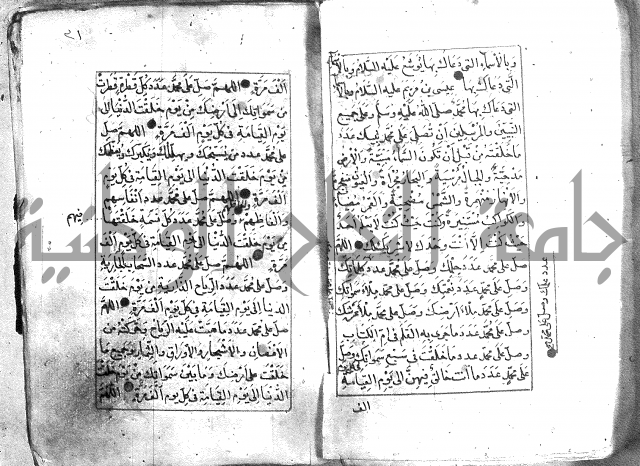 وبالأسماء التي دعاك بها يوشع عليه السلام وبالأسماء
التي دعاك بها عيسى بن مريم عليه السلام وبالأسماء
التي دعاك بها محمد صلى الله عليه وسلم وعلى جميع
النبيين والمرسلين أن تصلي على محمد نبيك عدد
ما خلقته من قبل أن تكون السماء مبنية والأرض
مدحية والجبال مرسية والبحار مجراة والعيون منفجرة
والأنهار منهمرة والشمس مضحية والقمر مضيئا
والكواكب مستنيرة وكنت حيث كنت لا يعلم أحد
حيث كنت إلا أنت وحدك لا شريك لك اللهم
صل على محمد عدد حلمك وصل على محمد عدد كلماتك
وصل على محمد عدد نعمتك وصل على محمد ملأ سمواتك
وصل على محمد ملأ ارضك وصل على محمد ملأ عرشك
وصل على محمد عدد ما جرى به القلم في ام الكتاب
وصل على محمد عدد ما خلقت في سبع سمواتك وصل
على محمد عدد ما أنت خالق فيهن الى يوم القيامة
الف
عدد علمك وصل على محمد
٣١
الف مرة اللهم صل على محمد عدد كل قطرة قطرت
من سمواتك الى ارضك من يوم خلقت الدنيا الى
يوم القيامة في كل يوم الف مرة اللهم صل
على محمد عدد من يسبحك ويهللك ويكبرك ويعظمك
من يوم خلقت الدنيا الى يوم القيامة في كل يوم
الف مرة اللهم صل على محمد عدد انفاسهم
والفاظهم وصل على محمد عدد كل نسمة خلقتها
من يوم خلقت الدنيا الى يوم القيامة في كل يوم الف
مرة اللهم صل على محمد عدد السحاب الجارية
وصل على محمد عدد الرياح الذارية من يوم خلقت
الدنيا الى يوم القيامة في كل يوم الف مرة اللهم
صل على محمد عدد ما هبت عليه الرياح وحركته من
الاغصان والاشجار والاوراق والثمار وجميع ما
خلقت على ارضك وما بين سمواتك من يوم خلقت
الدنيا الى يوم القيامة في كل يوم الف مرة اللهم
فيهم
جامعة النجاح الوطنية